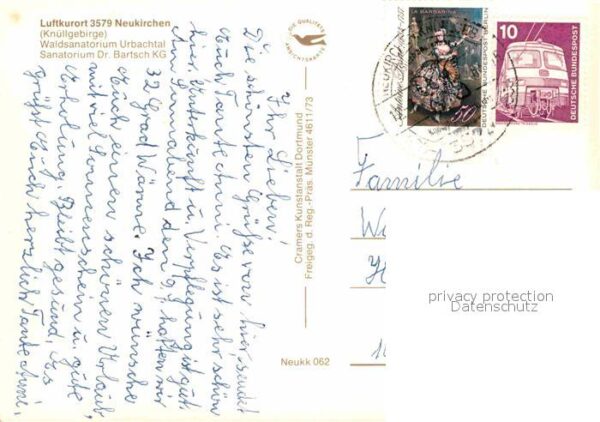 Luftkurort 3579 Neukirchen
(Knüllgebirge)
Waldsanatorium Urbachtal
Sanatorium Dr. Bartsch KG
Ihr Lieben!
Die schönsten Grüße von hier, sendet
Euch Tante Anni. Es ist sehr schön
hier, Unterkunft u. Verpflegung ist gut.
Am Sonnabend den 9. hatten wir
32 Grad Wärme. Ich wünsche
Euch einen schönen Urlaub,
mit viel Sonnenschein u. gute
Erholung. Bleibt gesund, Es
grüßt Euch herzlich Tante Anni.
DIE QUALITÄTS
ANSICHTSKARTE
Cramers Kunstanstalt Dortmund
Freigeg. d. Reg.-Präs. Münster 4611/73
Neukk 062
LA BARBARINA
50
DEUTSCHE BUNDESPOST BERLIN
10
DEUTSCHE BUNDESPOST
Familie
privacy protection
Datenschutz